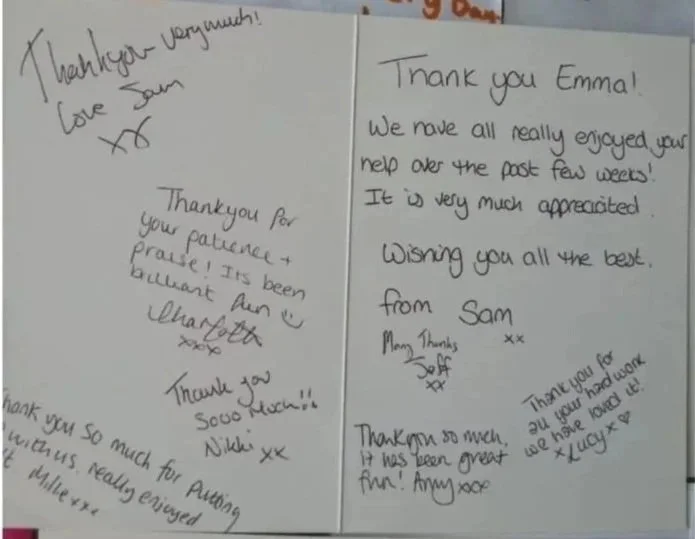 Thankyou very much!
Love Sam
xx
Thankyou for
your patience +
praise! Its been
brilliant fun
Charlotte
xxx
Thank you
Sooo Much!!
Nikki xx
hank you so much for putting
with us. really enjoyed
t Millie xxx
Day
Thank you Emma!
We have all really enjoyed your
help over the past few weeks!
It is very much appreciated.
Wishing you all the best.
from Sam
xx
Many Thanks
Jeff
xx
Thank you for
all your hard work
we have loved it!
x Lucy x ♡
Thankyou so much,
it has been great
fun! Amy xxx